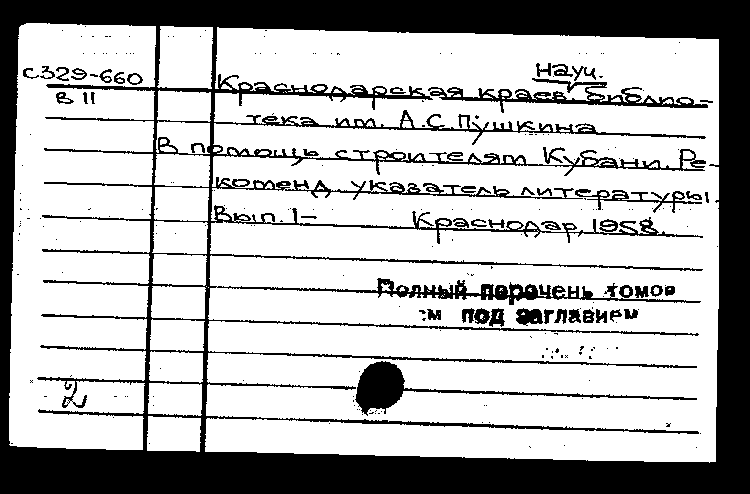 науч.
С329-660
В II
Краснодарская краев. библио-
тека им. А.С.Пушкина
В помощь строителям Кубани. Ре-
коменд. указатель литературы.
Вып. 1- Краснодар, 1958.
Полный перечень томов
см под заглавием
2